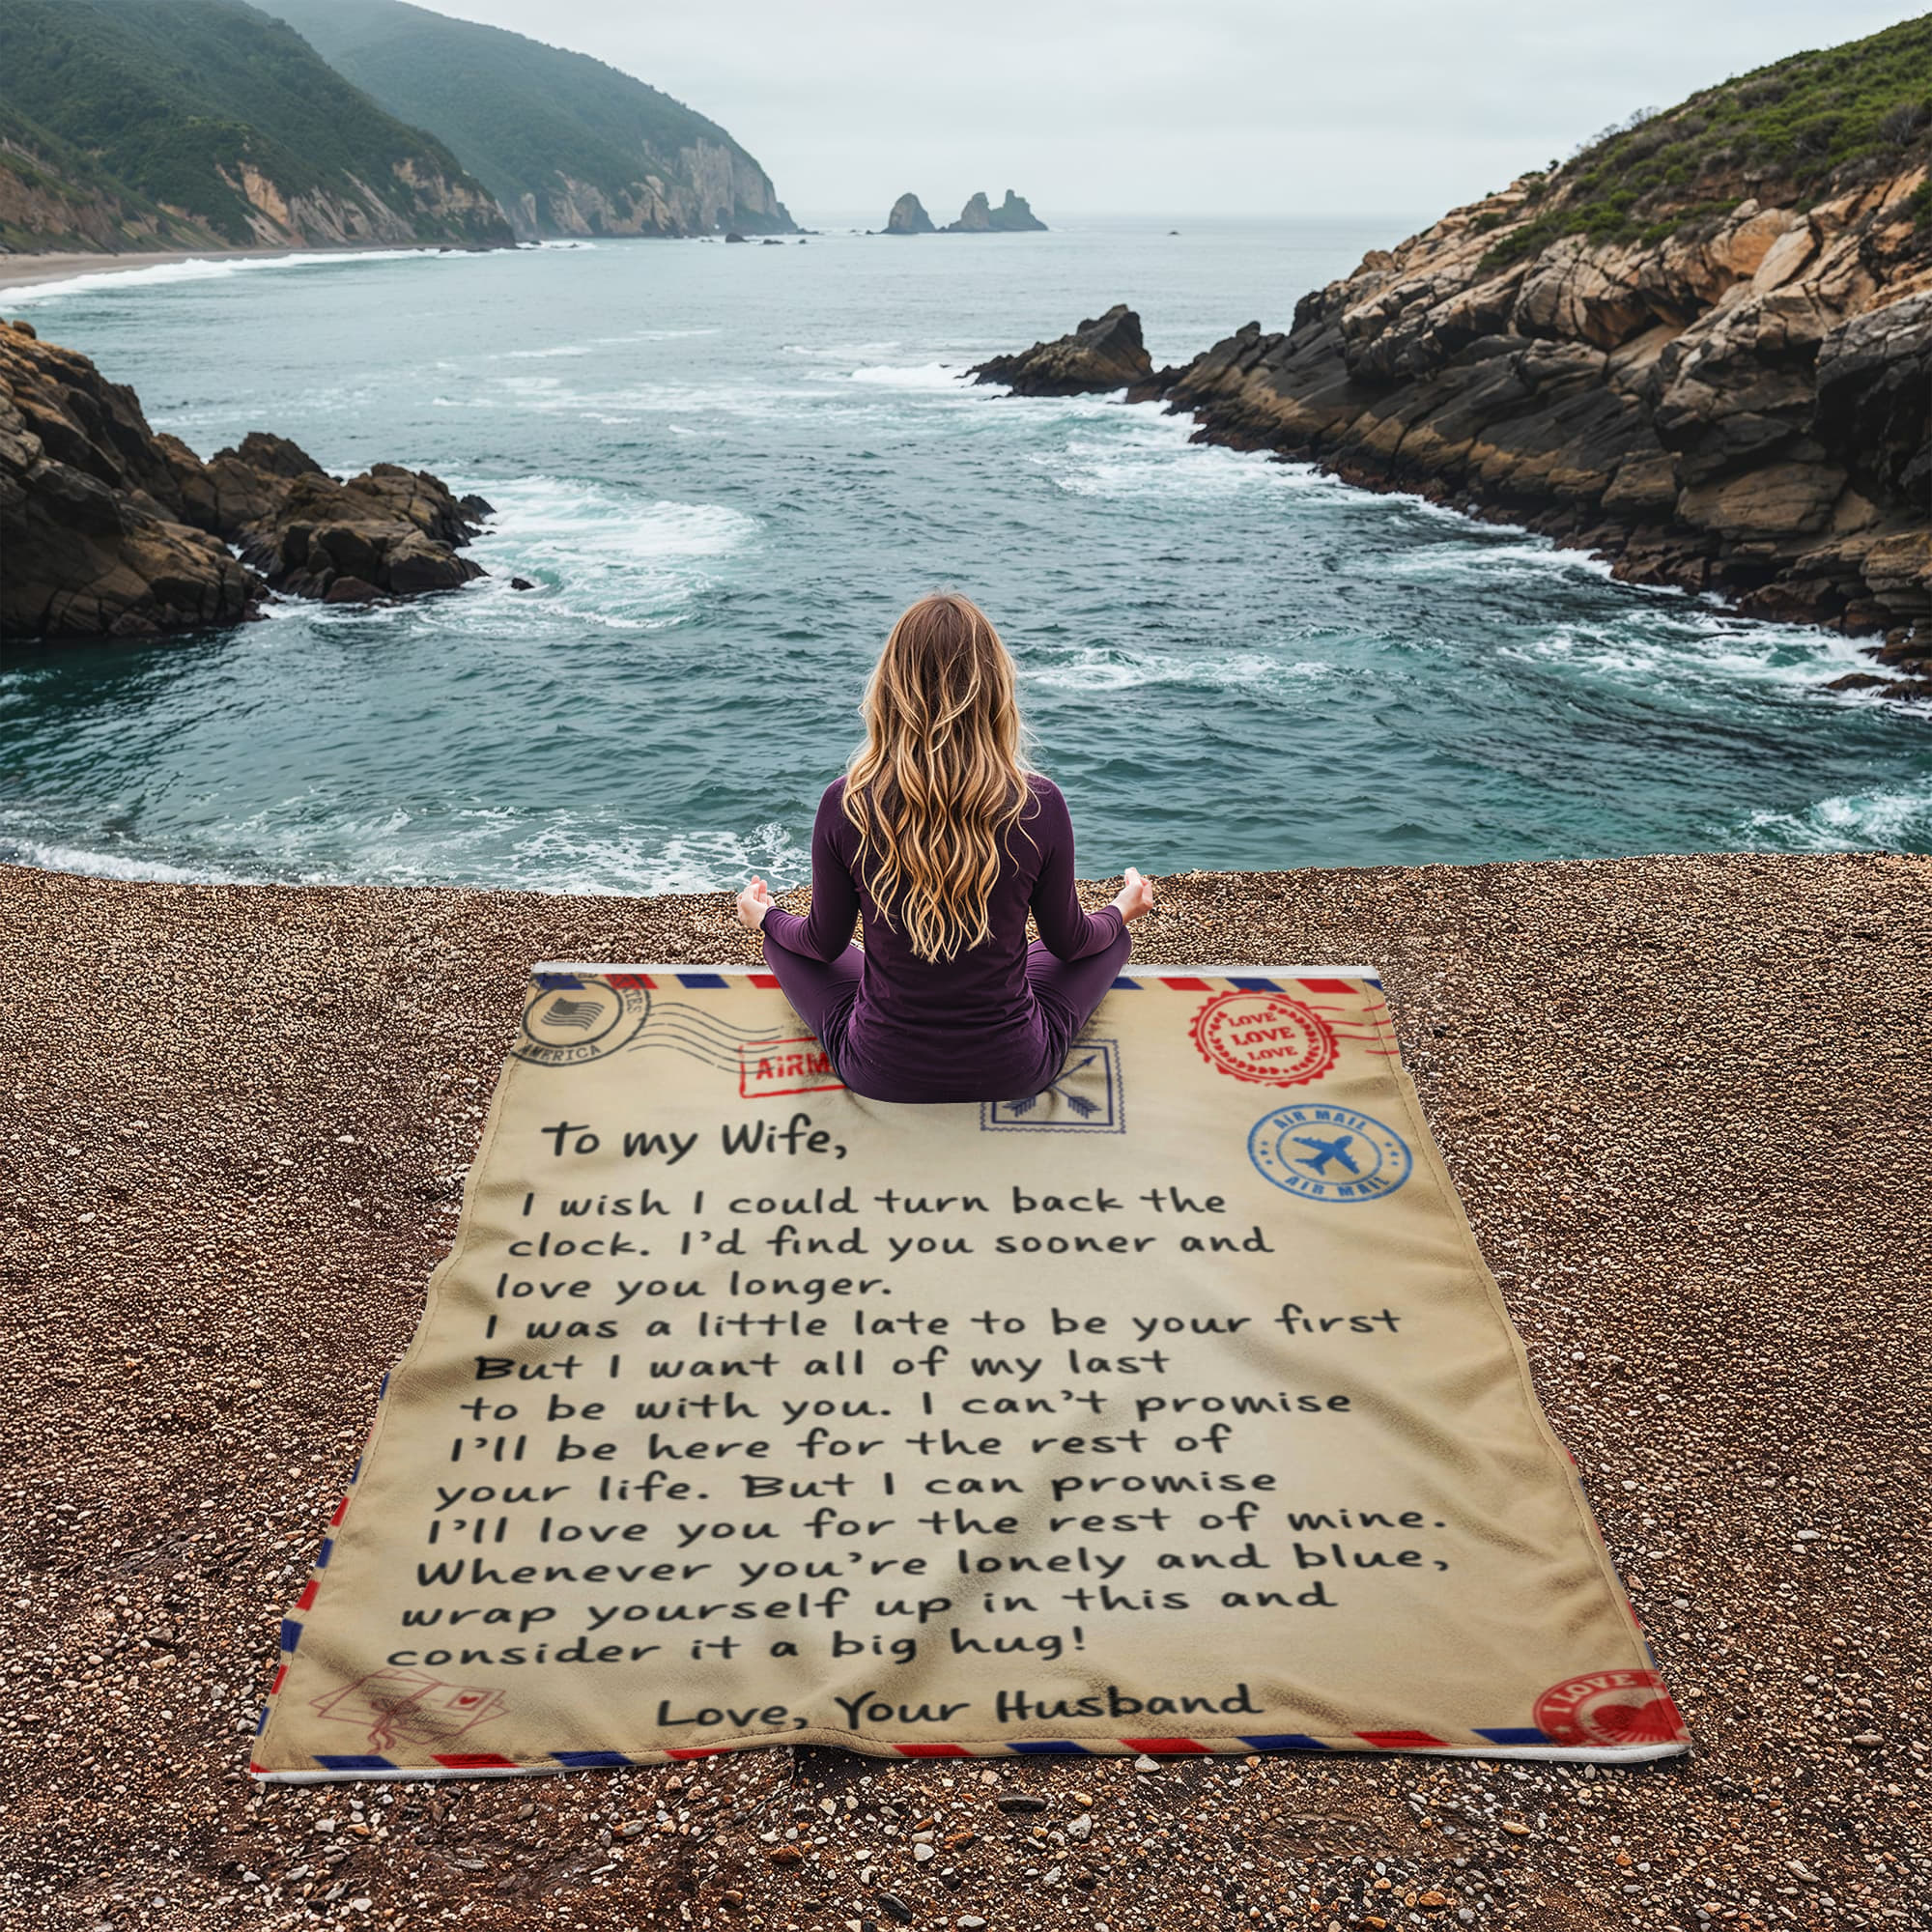 AMERICA
LOVE
LOVE
LOVE
AIR MAIL
AIR MAIL
To my Wife,
I wish I could turn back the
clock. I'd find you sooner and
love you longer.
I was a little late to be your first
But I want all of my last
to be with you. I can't promise
I'll be here for the rest of
your life. But I can promise
I'll love you for the rest of mine.
Whenever you're lonely and blue,
wrap yourself up in this and
consider it a big hug!
Love, Your Husband
I LOVE